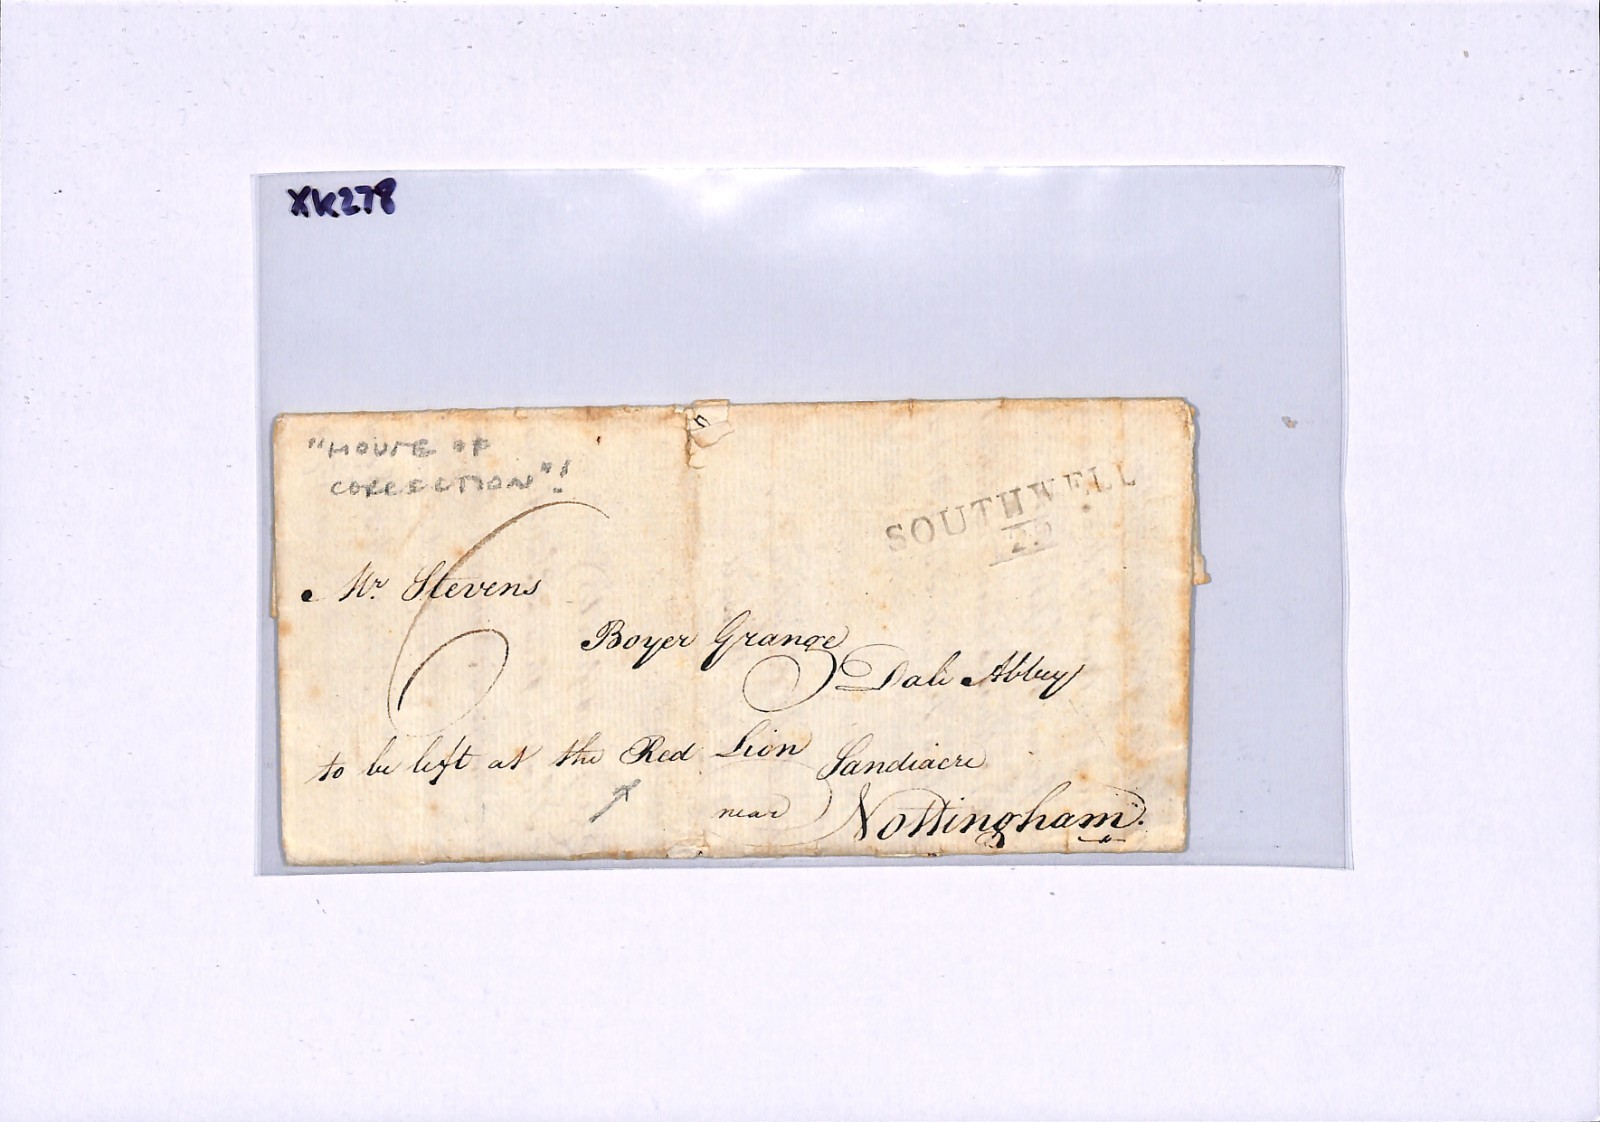 XK278
"HOUSE OF
CORRECTION"!
SOUTHWELL
6
Mr. Stevens
Boyer Grange
Dale Abbey
to be left at the Red Lion Sandiacre
near Nottingham.